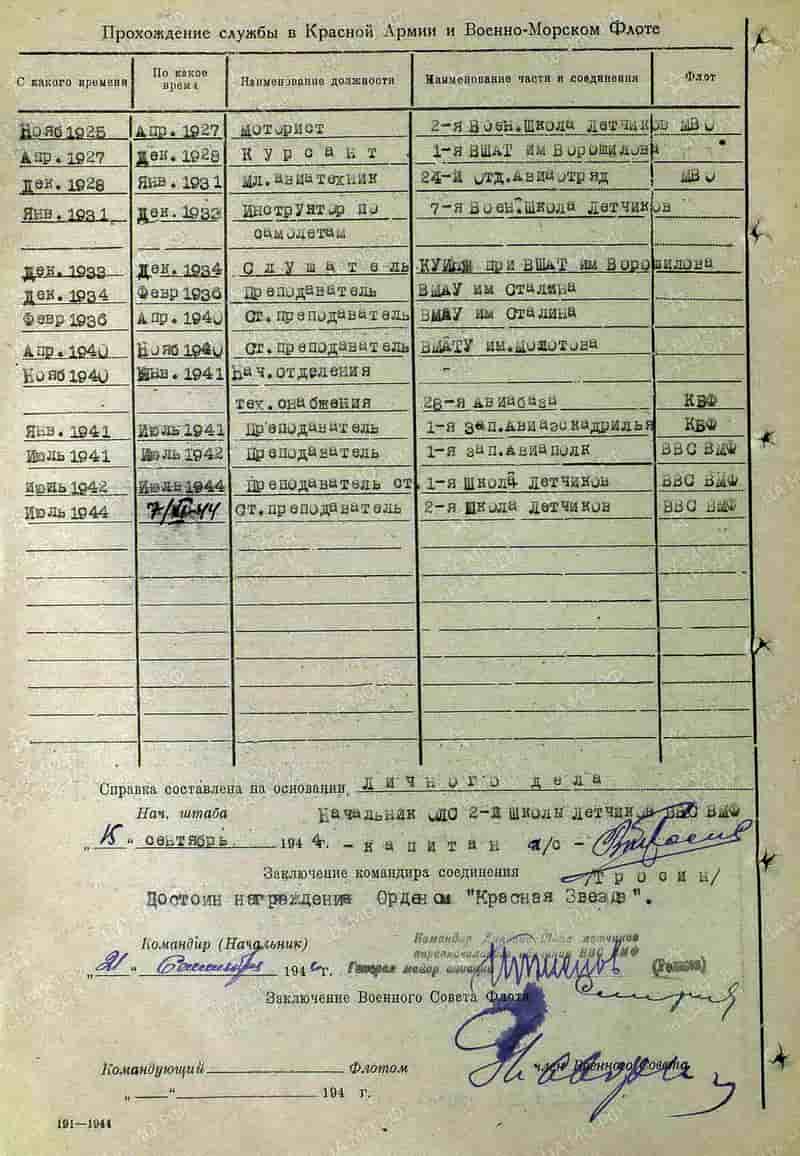 Прохождение службы в Красной Армии и Военно-Морском Флоте
С какого времени По какое время Наименование должности Наименование части и соединения Флот
Нояб 1925 Апр. 1927 Моторист 2-я Воен.Школа Летчиков МВо
Апр. 1927 Дек. 1928 Курсант 1-я ВШАТ им Ворошилова "
Дек. 1928 Янв. 1931 Мл.авиатехник 24-й отд.Авиаотряд МВо
Янв. 1931 Дек. 1933 Инструктор по 7-я Воен.Школа Летчиков
самолетам
Дек. 1933 Дек. 1934 Слушатель при ВШАТ им Ворошилова
Дек. 1934 Февр 1936 Преподаватель ВМАУ им Сталина
Февр 1936 Апр. 1940 Ст.преподаватель ВМАУ им Сталина
Апр. 1940 Нояб 1940 Ст.преподаватель ВМАТУ им.Молотова
Нояб 1940 Янв. 1941 Нач.отделения
тех.снабжения 28-я Авиабаза КБФ
Янв. 1941 Июль 1941 Преподаватель 1-я Зап.Авиаэскадрилья КБФ
Июль 1941 Июль 1942 Преподаватель 1-я зап.Авиаполк ВВС ВМФ
Июль 1942 Июль 1944 Преподаватель ст. 1-я Школа Летчиков ВВС ВМФ
Июль 1944 Ст.преподаватель 2-я Школа Летчиков ВВС ВМФ
Справка составлена на основании Личного дела
Нач. штаба Начальник 2-й школы Летчиков ВВС ВМФ
„15" сентябрь 1944 г. - капитан а/с -
Заключение командира соединения /Тросин/
Достоин награждения Орденом "Красная Звезда".
Командир (Начальник) Командир
„21" 194 г. Генерал майор авиации
Заключение Военного Совета Флота
Командующий Флотом Член Военного Совета
„ " 194 г.
191—1944